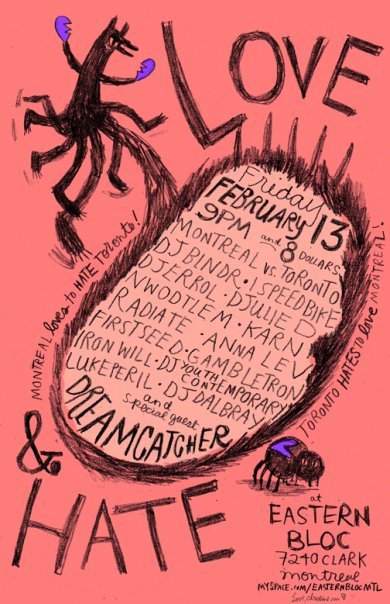 LOVE
Friday
FEBRUARY 13
9PM and 8 DOLLARS
MONTREAL VS. TORONTO
DJ BINDR · I SPEEDBIKE
DJ ERROL · DJ JULIE D
NWODTLEM · KARN
RADIATE · ANNA LEV
FIRST SEED · GAMBLETRON
IRON WILL · DJ YOUTH CONTEMPORARY
LUKE PERIL · DJ DALBRAY
and
special guest
DREAMCATCHER
MONTREAL loves to HATE Toronto!
TORONTO HATES to love MONTREAL!
& HATE
at
EASTERN
BLOC
7240 CLARK
montreal
MYSPACE.COM/EASTERNBLOCMTL